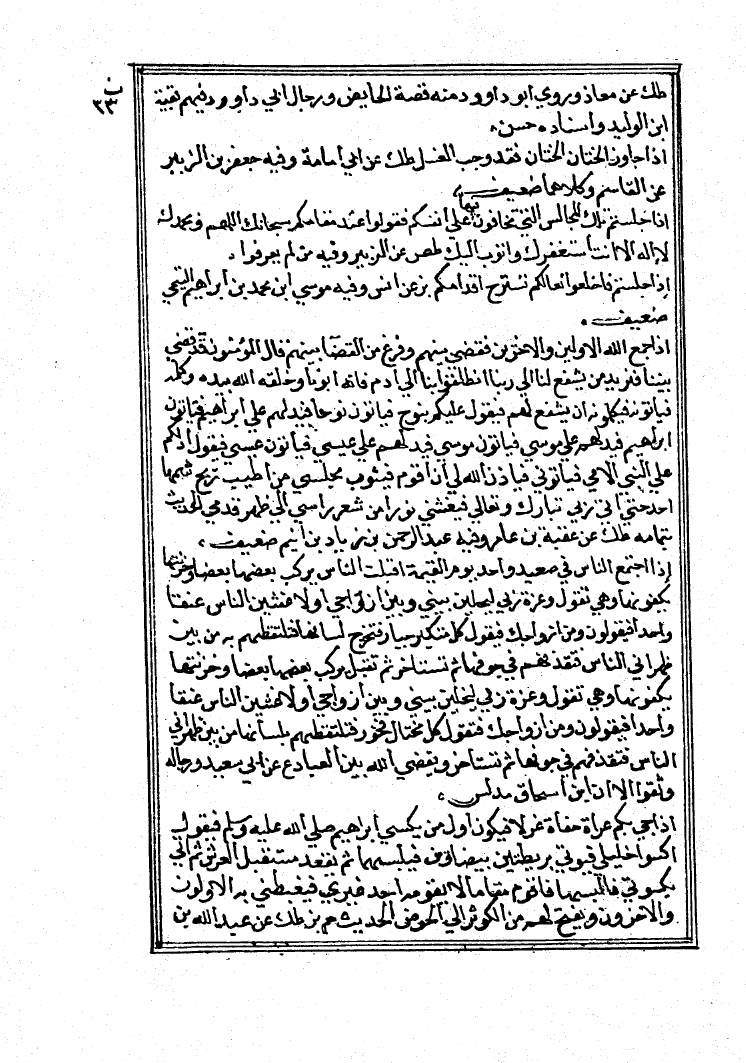 ن
٢٣
طك عن معاذ وروي ابو داوود منه قصة الحايض ورجال ابي داوود وفيهم بقية
ابن الوليد واسناده حسن،
اذا جاوز الختان الختان فقد وجب الغسل طك عن ابي امامة وفيه جعفر بن الزبير
عن القاسم وكلاهما ضعيف،
اذا جلستم تلك المجالس التي تخافون فيها على انفسكم فقولوا عند مقامكم سبحانك اللهم وبحمدك
لا اله الا انت استغفرك واتوب اليك طص عن الزبير وفيه من لم يعرفوا،
اذا جلستم فاخلعوا نعالكم تسترح اقدامكم بز عن انس وفيه موسي ابن محمد بن ابراهيم التيمي
ضعيف،
اذا جمع الله الاولين والاخرين فقضي بينهم وفرغ من القضا بينهم قال المؤمنون قد قضي
بيننا فمن يشفع لنا الي ربنا انطلقوا بنا الي ادم فانه ابونا وخلقه الله بيده وكلمه
فياتونه فيكلمونه ان يشفع لهم فيقول عليكم بنوح فياتون نوحا فيدلهم علي ابراهيم فياتون
ابراهيم فيدلهم علي موسي فياتون موسي فيدلهم علي عيسي فياتون عيسي فيقول ادلكم
علي النبي الامي فياتوني فياذن الله لي ان اقوم فيثور مجلسي من اطيب ريح شمها
احد حتي اتي ربي تبارك وتعالي فيغشني نورا من شعر راسي الي ظهر قدمي الحديث
بتمامه طك عن عقبة بن عامر وفيه عبد الرحمن بن زياد بن انعم ضعيف،
اذا اجتمع الناس في صعيد واحد يوم القيمة اقبلت الناس يركب بعضها بعضا وخزنتها
يكفونها وهي تقول وعزة ربي ليخلين بيني وبين ازواجي او لاغشين الناس عنقا
واحدا فيقولون ومن ازواجك فيقول كل متكبر جبار فتخرج لسانها فتلتقطهم به من بين
ظهراني الناس فتقذفهم في جوفها ثم تستاخر ثم تقبل يركب بعضها بعضا وخزنتها
يكفونها وهي تقول وعزة ربي ليخلين بيني وبين ازواجي او لاغشين الناس عنقا
واحدا فيقولون ومن ازواجك فتقول كل مختال فخور فتلتقطهم بلسانها من بين ظهراني
الناس فتقذفهم في جوفها ثم تستاخر ويقضي الله بين العباد ع عن ابي سعيد ورجاله
وثقوا الا ان ابن اسحاق مدلس،
اذا جي بكم عراة حفاة غرلا فيكون اول من يكسي ابراهيم صلي الله عليه وسلم فيقول
اكسوا خليلي فيوتي بريطتين بيضاوين فيلبسهما ثم يقعد مستقبل العرش ثم اتي
بكسوتي فالبسها فاقوم مقاما لا يقومه احد غيري فيغبطني به الاولون
والاخرون ويفتح لهم من الكوثر الي الحوض الحديث حم بز طك عن عبد الله بن